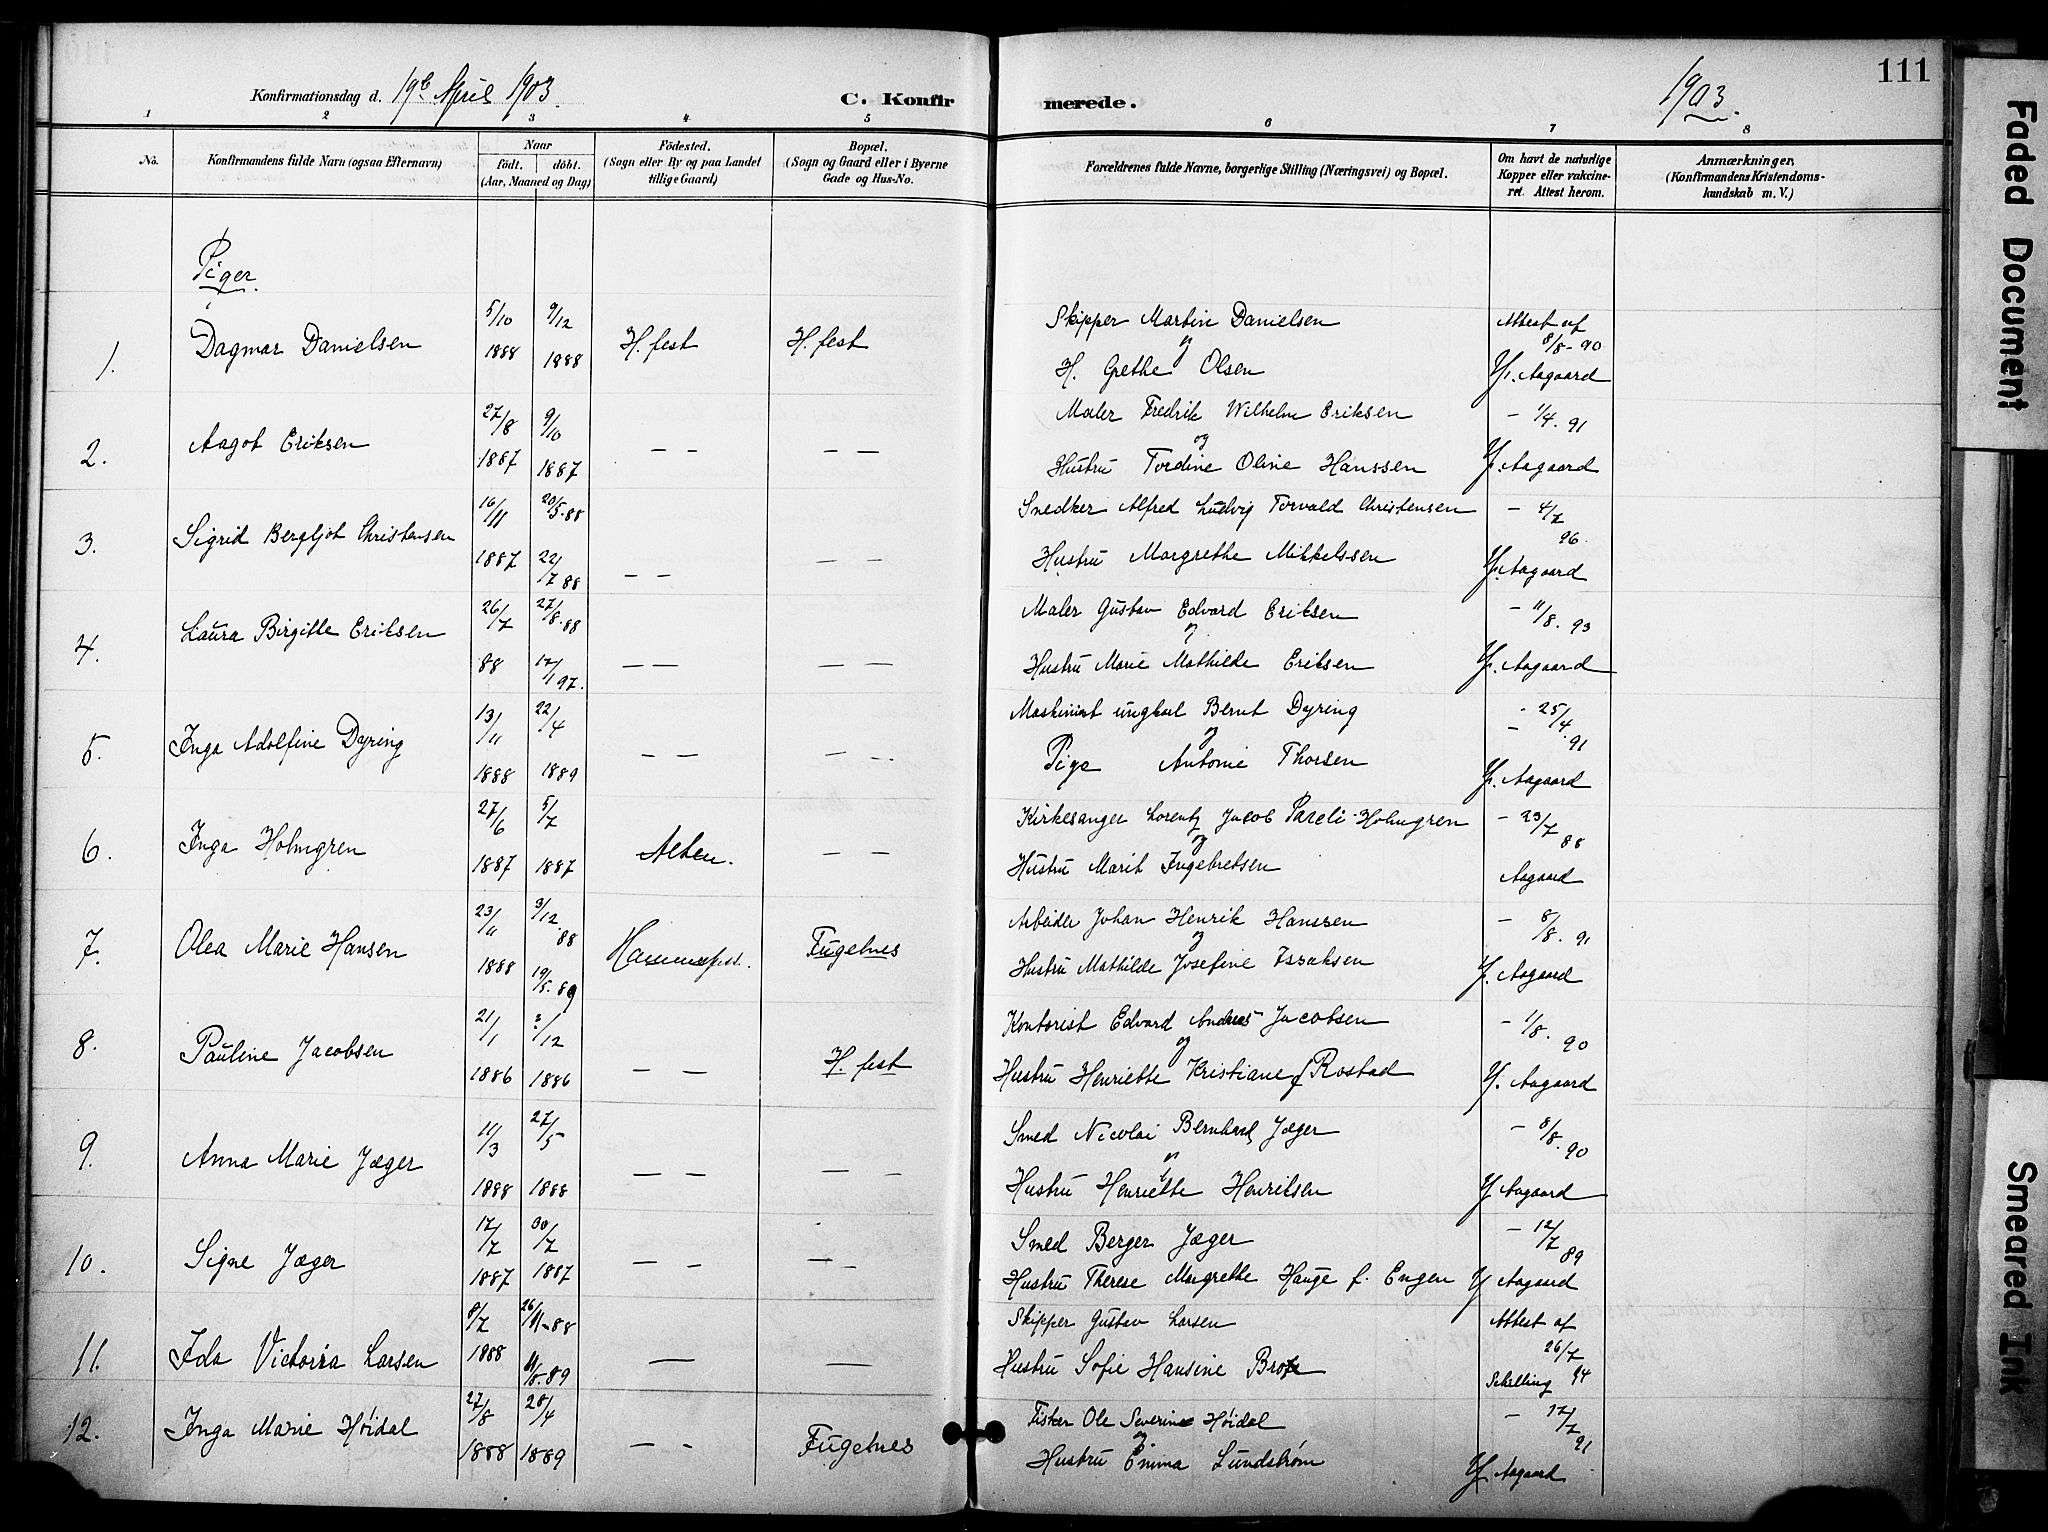 111
Konfirmationsdag d. 19de April 1903.
C. Konfir merede.
1903.
1 2 3 4 5 6 7 8
No.
Konfirmandens fulde Navn (ogsaa Efternavn)
Naar
födt. döbt.
(Aar, Maaned og Dag)
Födested.
(Sogn eller By og paa Landet
tillige Gaard)
Bopæl.
(Sogn og Gaard eller i Byerne
Gade og Hus-No.
Forældrenes fulde Navne, borgerlige Stilling (Næringsvei) og Bopæl.
Om havt de naturlige
Kopper eller vakcine-
ret. Attest herom.
Anmærkninger,
(Konfirmandens Kristendoms-
kundskab m. V.)
Piger
1. Dagmar Danielsen 5/10 1888 9/12 1888 H.fest H.fest
Skipper Martin Danielsen
og
H. Grethe Olsen
Attest af 8/8-90 Aagaard
2. Aagot Eriksen 27/8 1887 9/10 1887 — — — —
Maler Fredrik Wilhelm Eriksen
og
Hustru Tordine Oline Hanssen
— 1/4. 91 Aagaard
3. Sigrid Bergljot Christensen 16/11 1887 20/5-88 22/7 88 — — — —
Snedker Alfred Ludvig Torvald Christensen
Hustru Margrethe Mikkelssen
— 4/7 96. Aagaard
4. Laura Birgitte Eriksen 26/7 88 27/8-88 12/1 97. — — — —
Maler Gustav Edvard Eriksen
og
Hustru Marie Mathilde Eriksen
— 11/8. 93 Aagaard
5. Inga Adolfine Dyring 13/11 1888 22/4 1889 — — — —
Maskinist ungkarl Bernt Dyring
og
Pige Antonie Thorsen
— 25/4. 91 Aagaard
6. Inga Holmgren 27/6 1887 5/7 1887 Alten. — —
Kirkesanger Lorentz Jacob Pareli Holmgren
og
Hustru Marit Ingebretsen
— 23/7 88 Aagaard
7. Olea Marie Hansen 23/11 1888 3/12. 88 19/5. 89 Hammerfest. Fugelnes
Arbeider Johan Henrik Hanssen
og
Hustru Mathilde Josefine Isaksen
— 8/8. 91 Aagaard
8. Pauline Jacobsen 21/1 1886 2/12 1886 — — H.fest
Kontorist Edvard Andreas Jacobsen
og
Hustru Henriette Kristiane f Rostad
— 1/8. 90 Aagaard
9. Anna Marie Jæger 11/3 1888 27/5 1888 — — — —
Smed Nicolai Bernhard Jæger
og
Hustru Henriette Henriksen
— 8/8. 90 Aagaard
10. Signe Jæger 17/7 1887 30/7 1887 — — — —
Smed Berger Jæger
Hustru Therese Margrethe Hauge f. Engen
— 12/7 89 Aagaard
11. Ida Victoria Larsen 8/7 1888 26/11-88 11/8.89 — —
Skipper Gustav Larsen
Hustru Sofie Hansine
Attest af 26/7 94 Schilling
12. Inga Marie Höidal 27/8 1888 28/4 1889 — — Fugelnes
Fisker Ole Severin Höidal
og
Hustru Emma Lundström
— 12/7 91 Aagaard
Faded Document
Smeared Ink